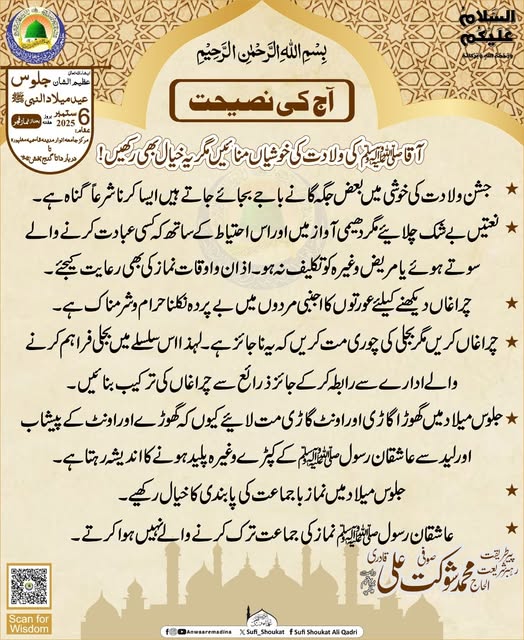 السلام
علیکم
ورحمۃ اللہ وبرکاتہ
عظیم الشان جلوس
عید میلاد النبی ﷺ
6 ستمبر 2025
بروز ہفتہ
بِسْمِ اللہِ الرَّحْمٰنِ الرَّحِیْمِ
آج کی نصیحت
آقا ﷺ کی ولادت کی خوشیاں منائیں مگر یہ خیال بھی رکھیں!
★ جشن ولادت کی خوشی میں بعض جگہ گانے باجے بجائے جاتے ہیں ایسا کرنا شرعاً گناہ ہے۔
★ نعتیں بے شک چلائیے مگر دھیمی آواز میں اور اس احتیاط کے ساتھ کہ کسی عبادت کرنے والے
سوتے ہوئے یا مریض وغیرہ کو تکلیف نہ ہو۔ اذان و اوقات نماز کی بھی رعایت کیجئے۔
★ چراغاں دیکھنے کیلئے عورتوں کا اجنبی مردوں میں بے پردہ نکلنا حرام و شرمناک ہے۔
★ چراغاں کریں مگر بجلی کی چوری مت کریں کہ یہ ناجائز ہے۔ لہذا اس سلسلے میں بجلی فراہم کرنے
والے ادارے سے رابطہ کر کے جائز ذرائع سے چراغاں کی ترکیب بنائیں۔
★ جلوس میلاد میں گھوڑا گاڑی اور اونٹ گاڑی مت لائیے کیوں کہ گھوڑے اور اونٹ کے پیشاب
اور لید سے عاشقان رسول ﷺ کے کپڑے وغیرہ پلید ہونے کا اندیشہ رہتا ہے۔
★ جلوس میلاد میں نماز باجماعت کی پابندی کا خیال رکھیے۔
★ عاشقان رسول ﷺ نماز کی جماعت ترک کرنے والے نہیں ہوا کرتے۔
پیر طریقت
رہبر شریعت
الحاج صوفی محمد شوکت علی قادری
Scan for
Wisdom
Anwaaremadina Sufi_Shoukat Sufi Shoukat Ali Qadri